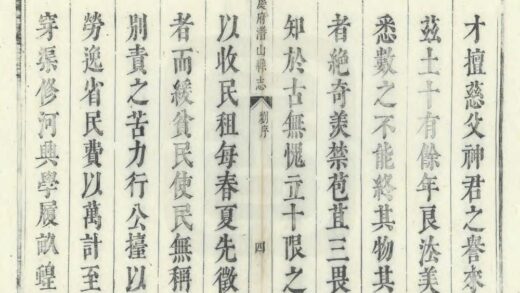 才擅慈父神君之譽來
茲土十有餘年良法美
悉數之不能終其物其
者絶奇羡禁苞苴三畏
知於古無愧立十限之
慶府潛山縣志
劉序
四
以收民租每春夏先徵
者而緩貧民使民無稱
別責之苦力行公㙜以
勞逸省民費以萬計至
穿渠修河興學履畝蝗